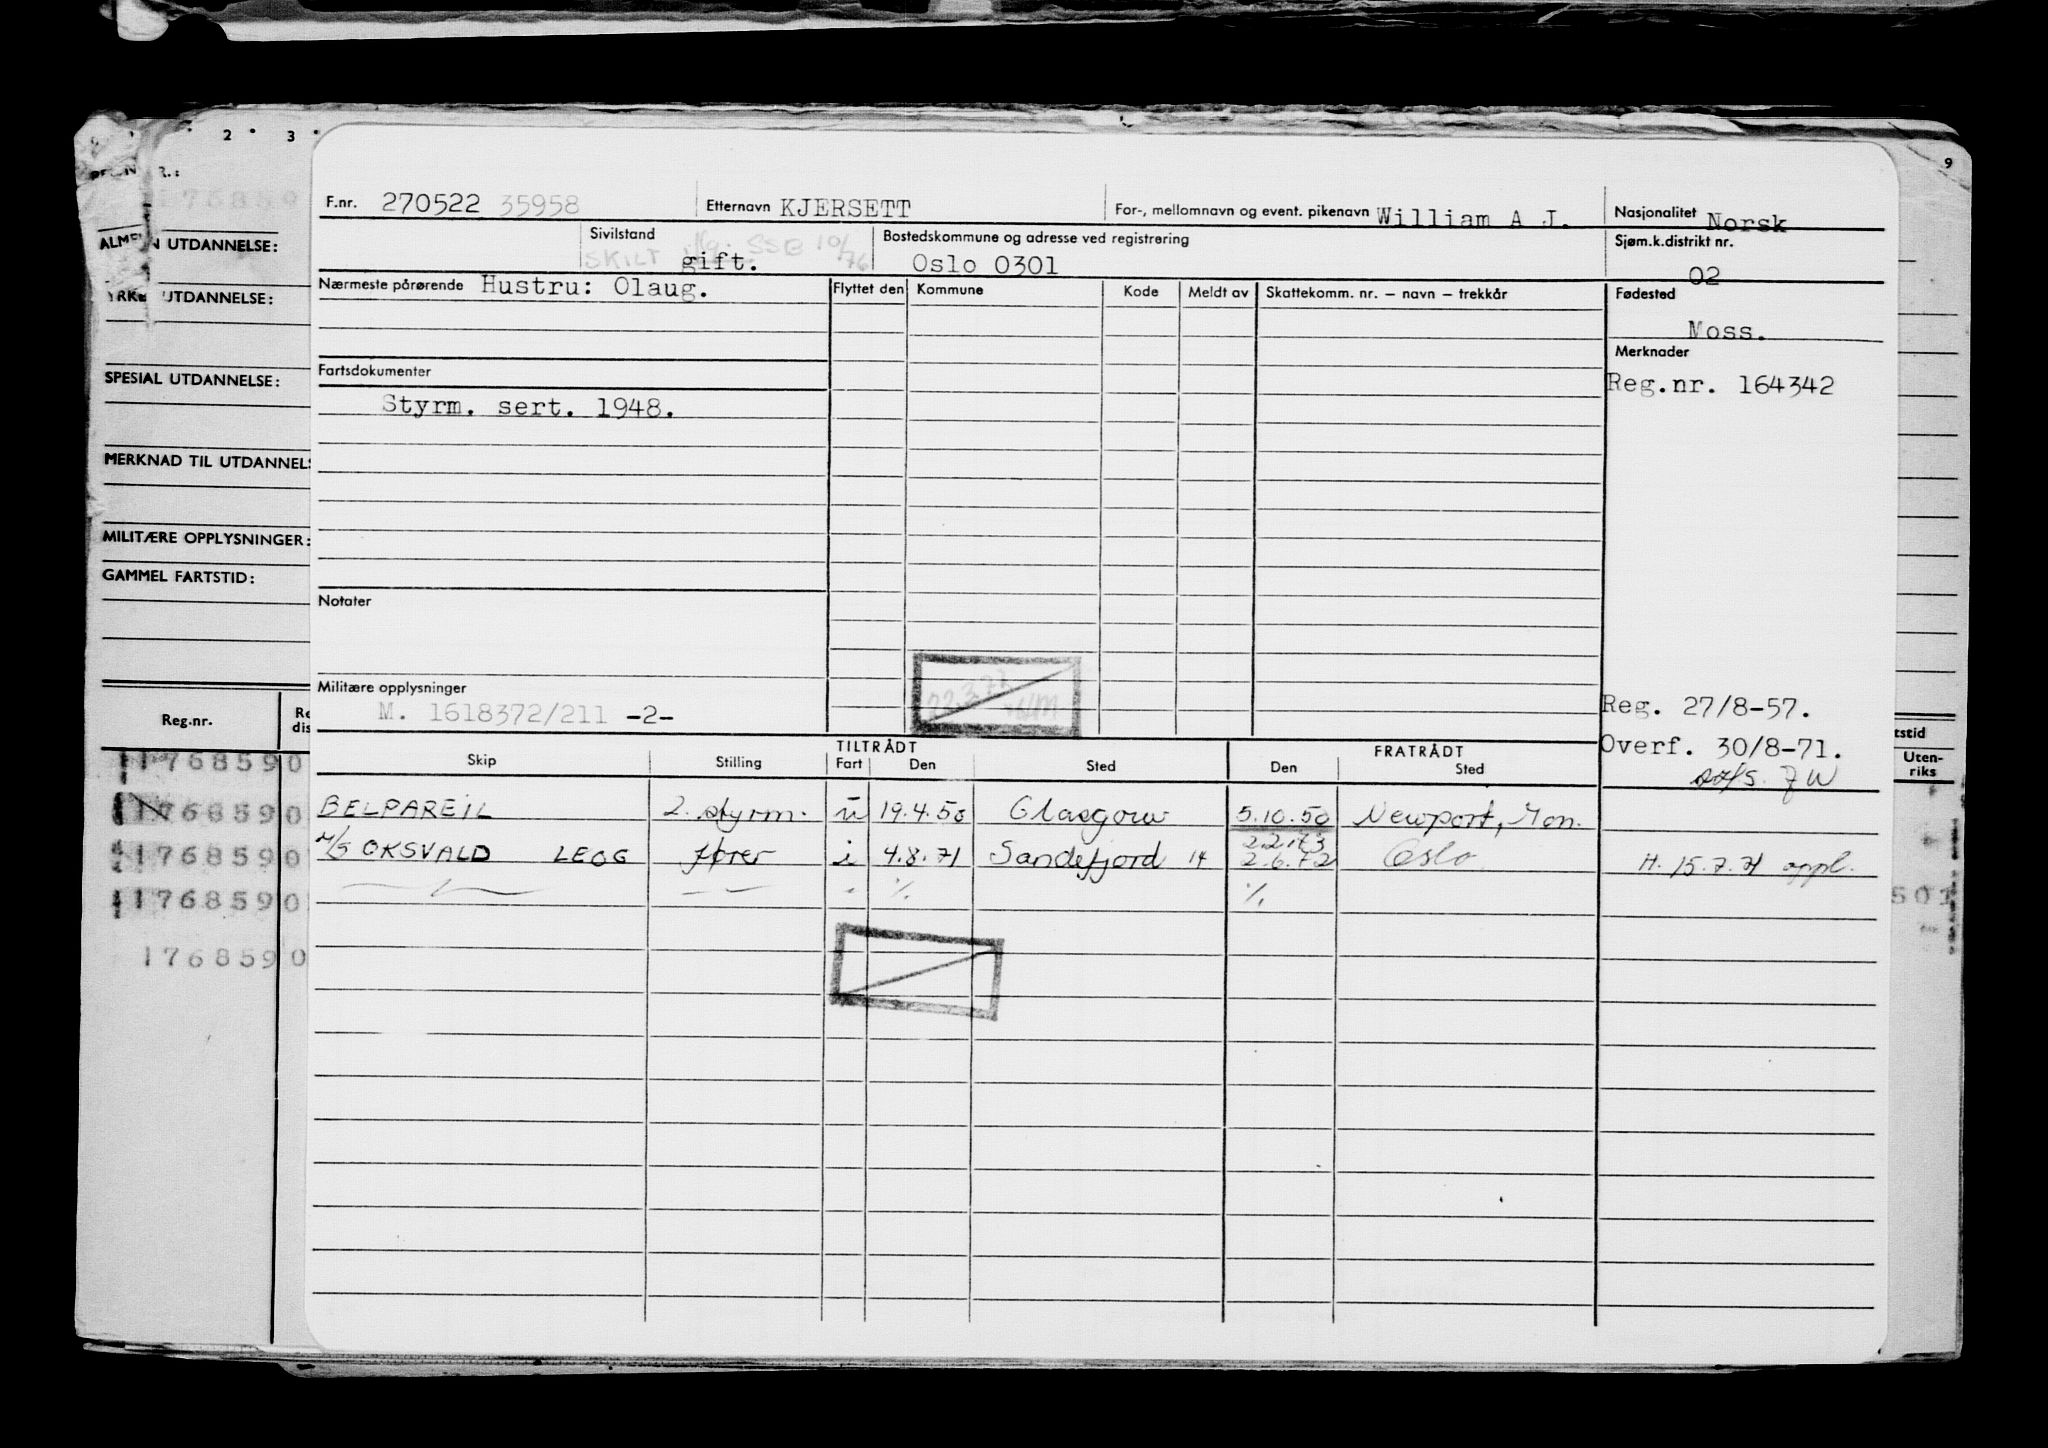 2 • 3 •
9
R.:
176859
F.nr. 270522 35958 Etternavn KJERSETT For-, mellomnavn og event. pikenavn William A J. Nasjonalitet Norsk
ALME N UTDANNELSE:
Sivilstand SKILT gift. SSB 10/76 Bostedskommune og adresse ved registrering Oslo 0301 Sjøm.k.distrikt nr. 02
YRKE UTDANNELSE:
Nærmeste pårørende Hustru: Olaug. Flyttet den Kommune Kode Meldt av Skattekomm. nr. – navn – trekkår Fødested
Moss.
Merknader
SPESIAL UTDANNELSE:
Fartsdokumenter
Reg.nr. 164342
Styrm. sert. 1948.
MERKNAD TIL UTDANNELS
MILITÆRE OPPLYSNINGER:
GAMMEL FARTSTID:
Notater
Militære opplysninger
M. 1618372/211 -2-
22.3.77
Reg. 27/8-57.
Overf. 30/8-71.
Reg.nr. Re dis
TILTRÅDT FRATRÅDT
Skip Stilling Fart Den Sted Den Sted
tstid
Uten-
riks
1768590
BELPAREIL 2. styrm. u 19.4.50 Glasgow 5.10.50 Newport, Mon.
1768590
M/S OKSVALD LEOG fører i 4.8.71 Sandefjord 14 2.2.73 2.6.72 Oslo H. 15.7.71 oppl.
1768590
1768590
501
1768590